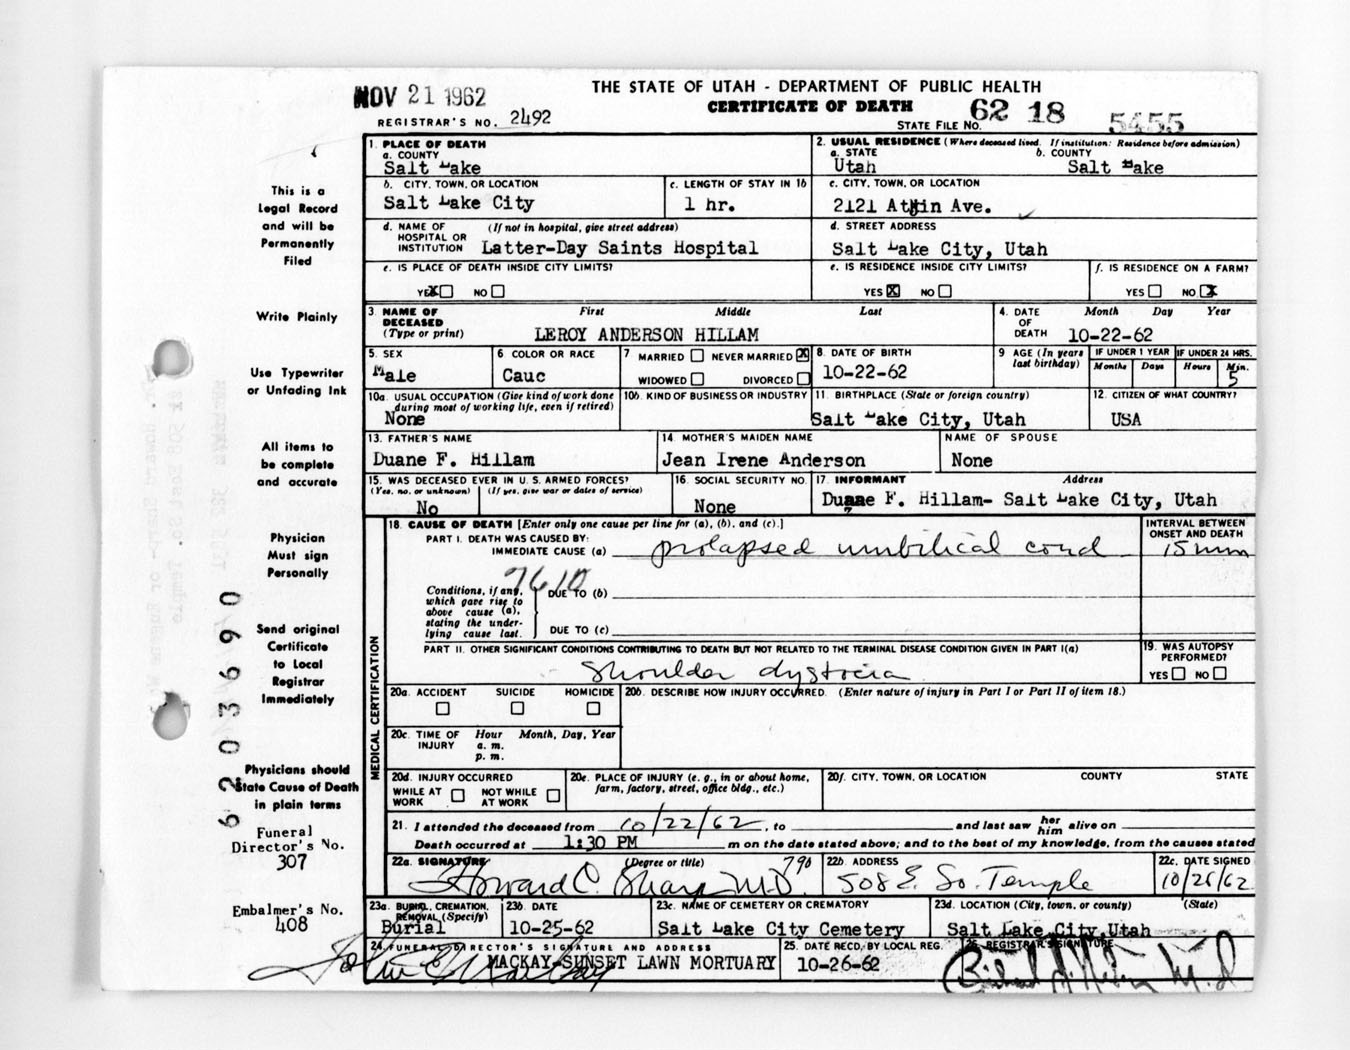 NOV 21 1962
THE STATE OF UTAH - DEPARTMENT OF PUBLIC HEALTH
CERTIFICATE OF DEATH
REGISTRAR'S NO. 2492
STATE FILE NO. 62 18 5455
This is a
Legal Record
and will be
Permanently
Filed
Write Plainly
Use Typewriter
or Unfading Ink
All items to
be complete
and accurate
Physician
Must sign
Personally
Send original
Certificate
to Local
Registrar
Immediately
Physicians should
State Cause of Death
in plain terms
Funeral
Director's No.
307
Embalmer's No.
408
6203690
1. PLACE OF DEATH
a. COUNTY
Salt Lake
2. USUAL RESIDENCE (Where deceased lived. If institution: Residence before admission)
a. STATE b. COUNTY
Utah Salt Lake
b. CITY, TOWN, OR LOCATION
Salt Lake City
c. LENGTH OF STAY IN 1b
1 hr.
c. CITY, TOWN, OR LOCATION
2121 Atkin Ave.
d. NAME OF (If not in hospital, give street address)
HOSPITAL OR
INSTITUTION Latter-Day Saints Hospital
d. STREET ADDRESS
Salt Lake City, Utah
e. IS PLACE OF DEATH INSIDE CITY LIMITS?
YES X NO
e. IS RESIDENCE INSIDE CITY LIMITS?
YES X NO
f. IS RESIDENCE ON A FARM?
YES NO X
3. NAME OF DECEASED (Type or print) First Middle Last
LEROY ANDERSON HILLAM
4. DATE OF DEATH Month Day Year
10-22-62
5. SEX
Male
6 COLOR OR RACE
Cauc
7 MARRIED NEVER MARRIED X
WIDOWED DIVORCED
8. DATE OF BIRTH
10-22-62
9 AGE (In years last birthday)
IF UNDER 1 YEAR
Months Days
IF UNDER 24 HRS.
Hours Min.
5
10a. USUAL OCCUPATION (Give kind of work done during most of working life, even if retired)
None
10b. KIND OF BUSINESS OR INDUSTRY
11. BIRTHPLACE (State or foreign country)
Salt Lake City, Utah
12. CITIZEN OF WHAT COUNTRY?
USA
13. FATHER'S NAME
Duane F. Hillam
14. MOTHER'S MAIDEN NAME
Jean Irene Anderson
NAME OF SPOUSE
None
15. WAS DECEASED EVER IN U. S. ARMED FORCES?
(Yes, no, or unknown) (If yes, give war or dates of service)
No
16. SOCIAL SECURITY NO.
None
17. INFORMANT Address
Duane F. Hillam- Salt Lake City, Utah
MEDICAL CERTIFICATION
18. CAUSE OF DEATH [Enter only one cause per line for (a), (b), and (c).]
PART I. DEATH WAS CAUSED BY:
IMMEDIATE CAUSE (a) prolapsed umbilical cord
INTERVAL BETWEEN
ONSET AND DEATH
15 min
7610
Conditions, if any,
which gave rise to
above cause (a),
stating the under-
lying cause last.
DUE TO (b)
DUE TO (c)
PART II. OTHER SIGNIFICANT CONDITIONS CONTRIBUTING TO DEATH BUT NOT RELATED TO THE TERMINAL DISEASE CONDITION GIVEN IN PART I(a)
Shoulder dystocia
19. WAS AUTOPSY
PERFORMED?
YES NO
20a. ACCIDENT SUICIDE HOMICIDE
20b. DESCRIBE HOW INJURY OCCURRED. (Enter nature of injury in Part I or Part II of item 18.)
20c. TIME OF INJURY Hour Month, Day, Year
a. m.
p. m.
20d. INJURY OCCURRED
WHILE AT WORK NOT WHILE AT WORK
20e. PLACE OF INJURY (e. g., in or about home, farm, factory, street, office bldg., etc.)
20f. CITY, TOWN, OR LOCATION COUNTY STATE
21. I attended the deceased from 10/22/62, to and last saw her him alive on
Death occurred at 1:30 PM m on the date stated above; and to the best of my knowledge, from the causes stated
22a. SIGNATURE (Degree or title) 790
Howard C. Sharp M.D.
22b. ADDRESS
508 E. So. Temple
22c. DATE SIGNED
10/26/62
23a. BURIAL, CREMATION, REMOVAL (Specify)
Burial
23b. DATE
10-25-62
23c. NAME OF CEMETERY OR CREMATORY
Salt Lake City Cemetery
23d. LOCATION (City, town, or county) (State)
Salt Lake City, Utah
24. FUNERAL DIRECTOR'S SIGNATURE AND ADDRESS
MACKAY-SUNSET LAWN MORTUARY
25. DATE RECD. BY LOCAL REG.
10-26-62
26. REGISTRAR'S SIGNATURE